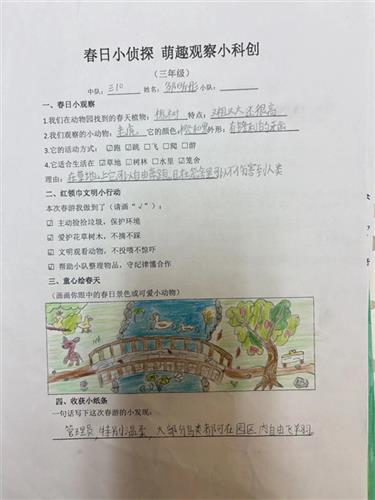 春日小侦探 萌趣观察小科创
（三年级）
中队：310 姓名： 小队：
一、春日小观察
1.我们在动物园找到的春天植物：树 特点：又粗又大还很高
2.我们观察的小动物：老虎。它的颜色：橙和黑 外形：有锋利的牙齿
3.它的活动方式：☑跑 ☑跳 □飞 □爬 □游
4.它适合生活在 ☑草地 □树林 □水里 ☑笼舍
理由：在草地上它可以自由奔跑，且在笼舍里可以不伤害到人类
二、红领巾文明小行动
本次春游我做到了（请画“√”）：
☑ 主动捡拾垃圾，保护环境
☑ 爱护花草树木，不摘不踩
☑ 文明观看动物，不投喂不惊吓
☑ 帮助小队整理物品，守纪律懂合作
三、童心绘春天
（画画你眼中的春日景色或可爱小动物）
四、收获小纸条
一句话写下这次春游的小发现：
管理员特别温柔，大部分鸟类都可在园区内自由飞翔。